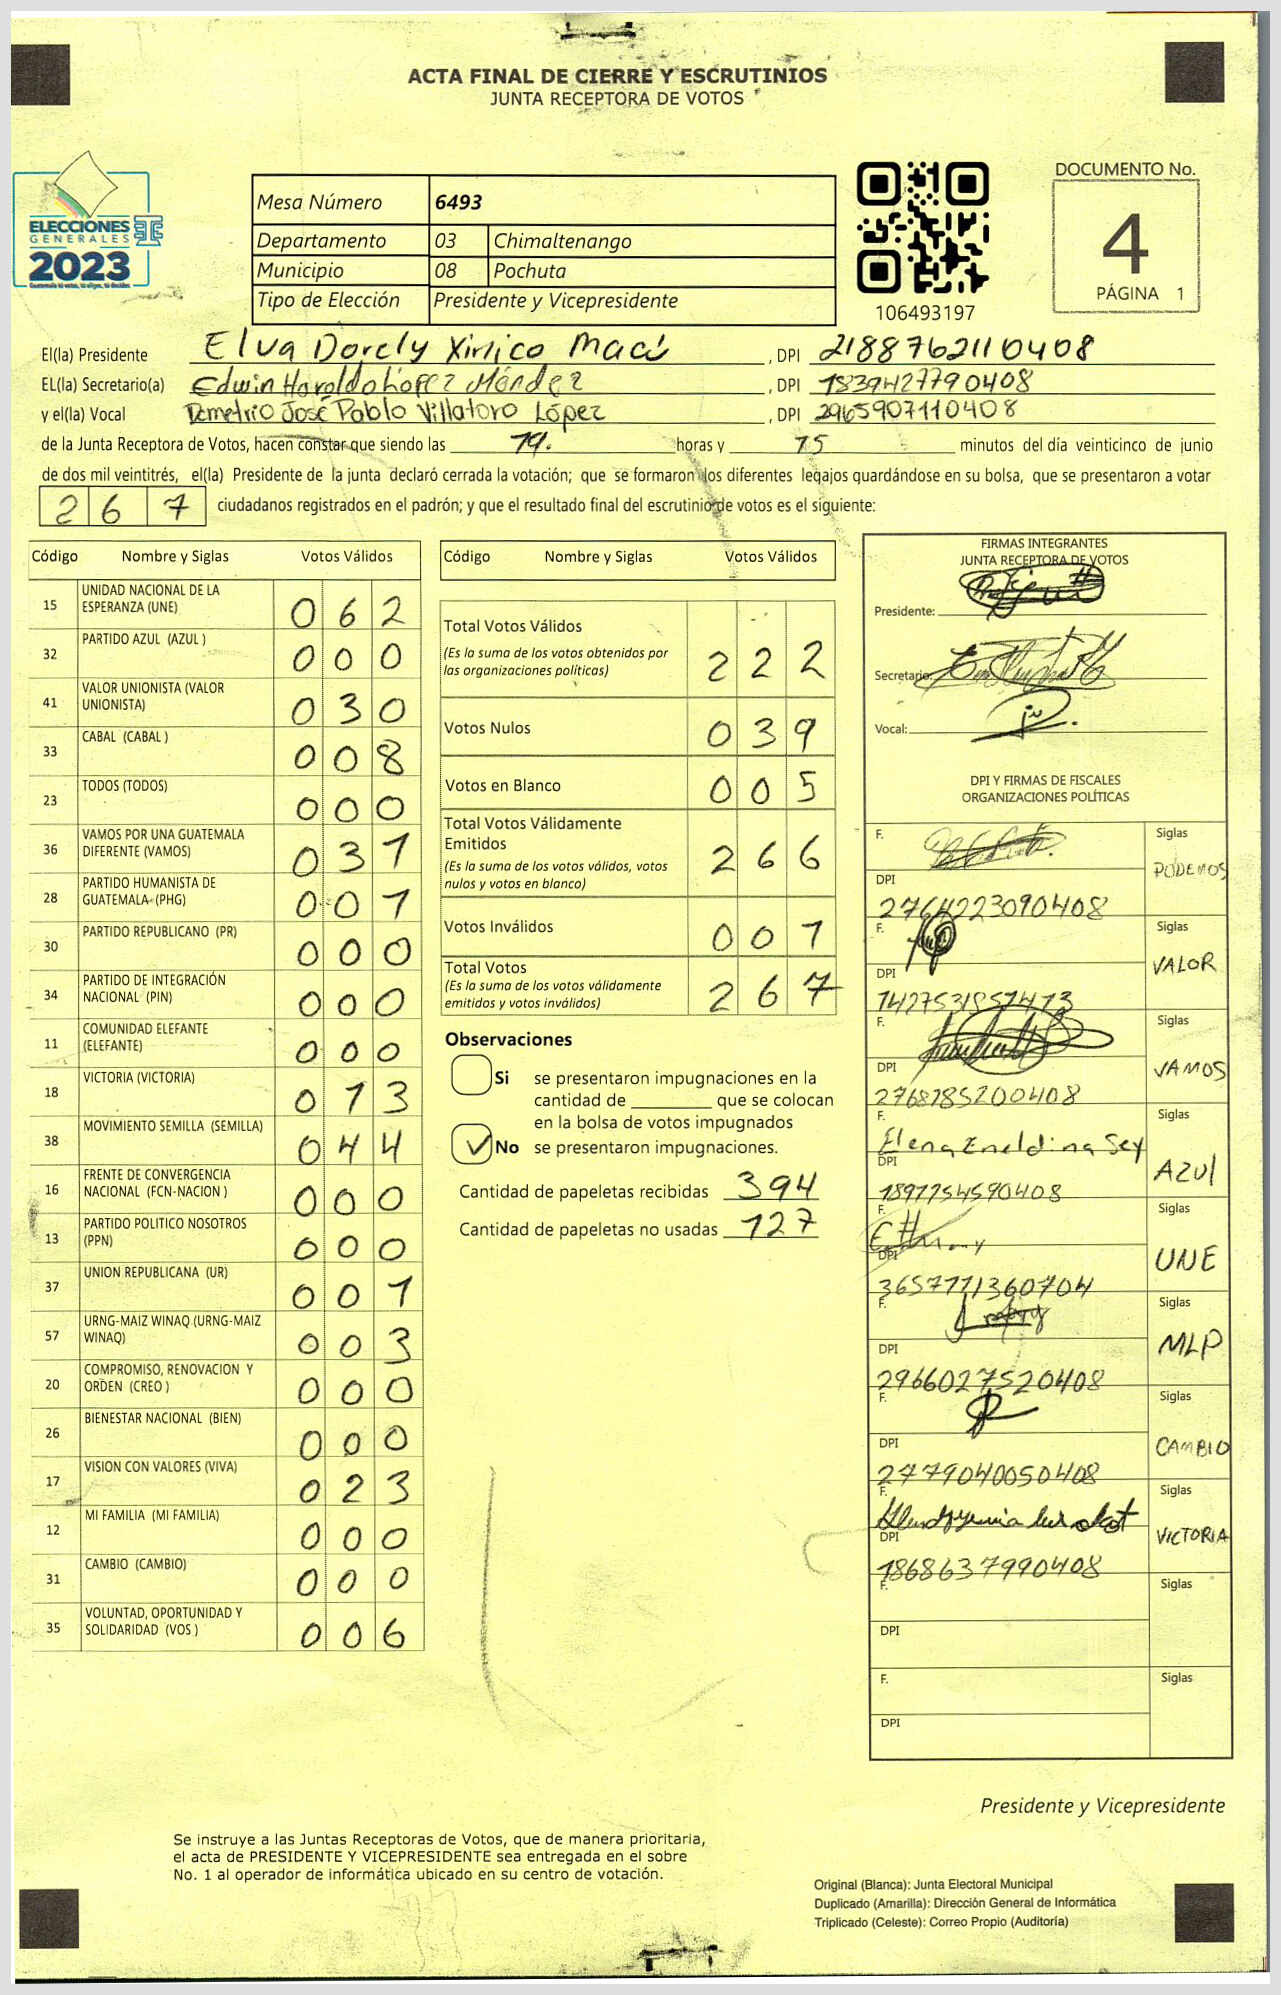 ACTA FINAL DE CIERRE Y ESCRUTINIOS
JUNTA RECEPTORA DE VOTOS
ELECCIONES
GENERALES
2023
Guatemala tú votas, tú eliges, tú decides
Mesa Número 6493
Departamento 03 Chimaltenango
Municipio 08 Pochuta
Tipo de Elección Presidente y Vicepresidente
106493197
DOCUMENTO No.
4
PÁGINA 1
El(la) Presidente Elva Dorely Xinico Macú , DPI 2188762110408
EL(la) Secretario(a) Edwin Haroldo López Méndez , DPI 1839427790408
y el(la) Vocal Demetrio José Pablo Villatoro López , DPI 2965907110408
de la Junta Receptora de Votos, hacen constar que siendo las 19. horas y 15 minutos del día veinticinco de junio
de dos mil veintitrés, el(la) Presidente de la junta declaró cerrada la votación; que se formaron los diferentes legajos guardándose en su bolsa, que se presentaron a votar
267 ciudadanos registrados en el padrón; y que el resultado final del escrutinio de votos es el siguiente:
Código Nombre y Siglas Votos Válidos
15 UNIDAD NACIONAL DE LA ESPERANZA (UNE) 062
32 PARTIDO AZUL (AZUL ) 000
41 VALOR UNIONISTA (VALOR UNIONISTA) 030
33 CABAL (CABAL ) 008
23 TODOS (TODOS) 000
36 VAMOS POR UNA GUATEMALA DIFERENTE (VAMOS) 031
28 PARTIDO HUMANISTA DE GUATEMALA (PHG) 001
30 PARTIDO REPUBLICANO (PR) 000
34 PARTIDO DE INTEGRACIÓN NACIONAL (PIN) 000
11 COMUNIDAD ELEFANTE (ELEFANTE) 000
18 VICTORIA (VICTORIA) 013
38 MOVIMIENTO SEMILLA (SEMILLA) 044
16 FRENTE DE CONVERGENCIA NACIONAL (FCN-NACION ) 000
13 PARTIDO POLITICO NOSOTROS (PPN) 000
37 UNION REPUBLICANA (UR) 001
57 URNG-MAIZ WINAQ (URNG-MAIZ WINAQ) 003
20 COMPROMISO, RENOVACION Y ORDEN (CREO ) 000
26 BIENESTAR NACIONAL (BIEN) 000
17 VISION CON VALORES (VIVA) 023
12 MI FAMILIA (MI FAMILIA) 000
31 CAMBIO (CAMBIO) 000
35 VOLUNTAD, OPORTUNIDAD Y SOLIDARIDAD (VOS ) 006
Código Nombre y Siglas Votos Válidos
Total Votos Válidos 222
(Es la suma de los votos obtenidos por
las organizaciones políticas)
Votos Nulos 039
Votos en Blanco 005
Total Votos Válidamente
Emitidos 266
(Es la suma de los votos válidos, votos
nulos y votos en blanco)
Votos Inválidos 001
Total Votos 267
(Es la suma de los votos válidamente
emitidos y votos inválidos)
Observaciones
Si se presentaron impugnaciones en la
cantidad de ________ que se colocan
en la bolsa de votos impugnados
✓ No se presentaron impugnaciones.
Cantidad de papeletas recibidas 394
Cantidad de papeletas no usadas 127
FIRMAS INTEGRANTES
JUNTA RECEPTORA DE VOTOS
Presidente:
Secretario:
Vocal:
DPI Y FIRMAS DE FISCALES
ORGANIZACIONES POLÍTICAS
F. Siglas
PODEMOS
DPI
2764223090408
F. Siglas
VALOR
DPI
1427531851413
F. Siglas
VAMOS
DPI
2768785200408
F. Siglas
Elena Eneldina Sey
AZUl
DPI
1891754590408
F. Siglas
UNE
DPI
3657711360704
F. Siglas
MLP
DPI
2966027520408
F. Siglas
CAMBIO
DPI
2779040050408
F. Siglas
VICTORIA
DPI
1868637990408
F. Siglas
DPI
F. Siglas
DPI
Presidente y Vicepresidente
Se instruye a las Juntas Receptoras de Votos, que de manera prioritaria,
el acta de PRESIDENTE Y VICEPRESIDENTE sea entregada en el sobre
No. 1 al operador de informática ubicado en su centro de votación.
Original (Blanca): Junta Electoral Municipal
Duplicado (Amarilla): Dirección General de Informática
Triplicado (Celeste): Correo Propio (Auditoría)